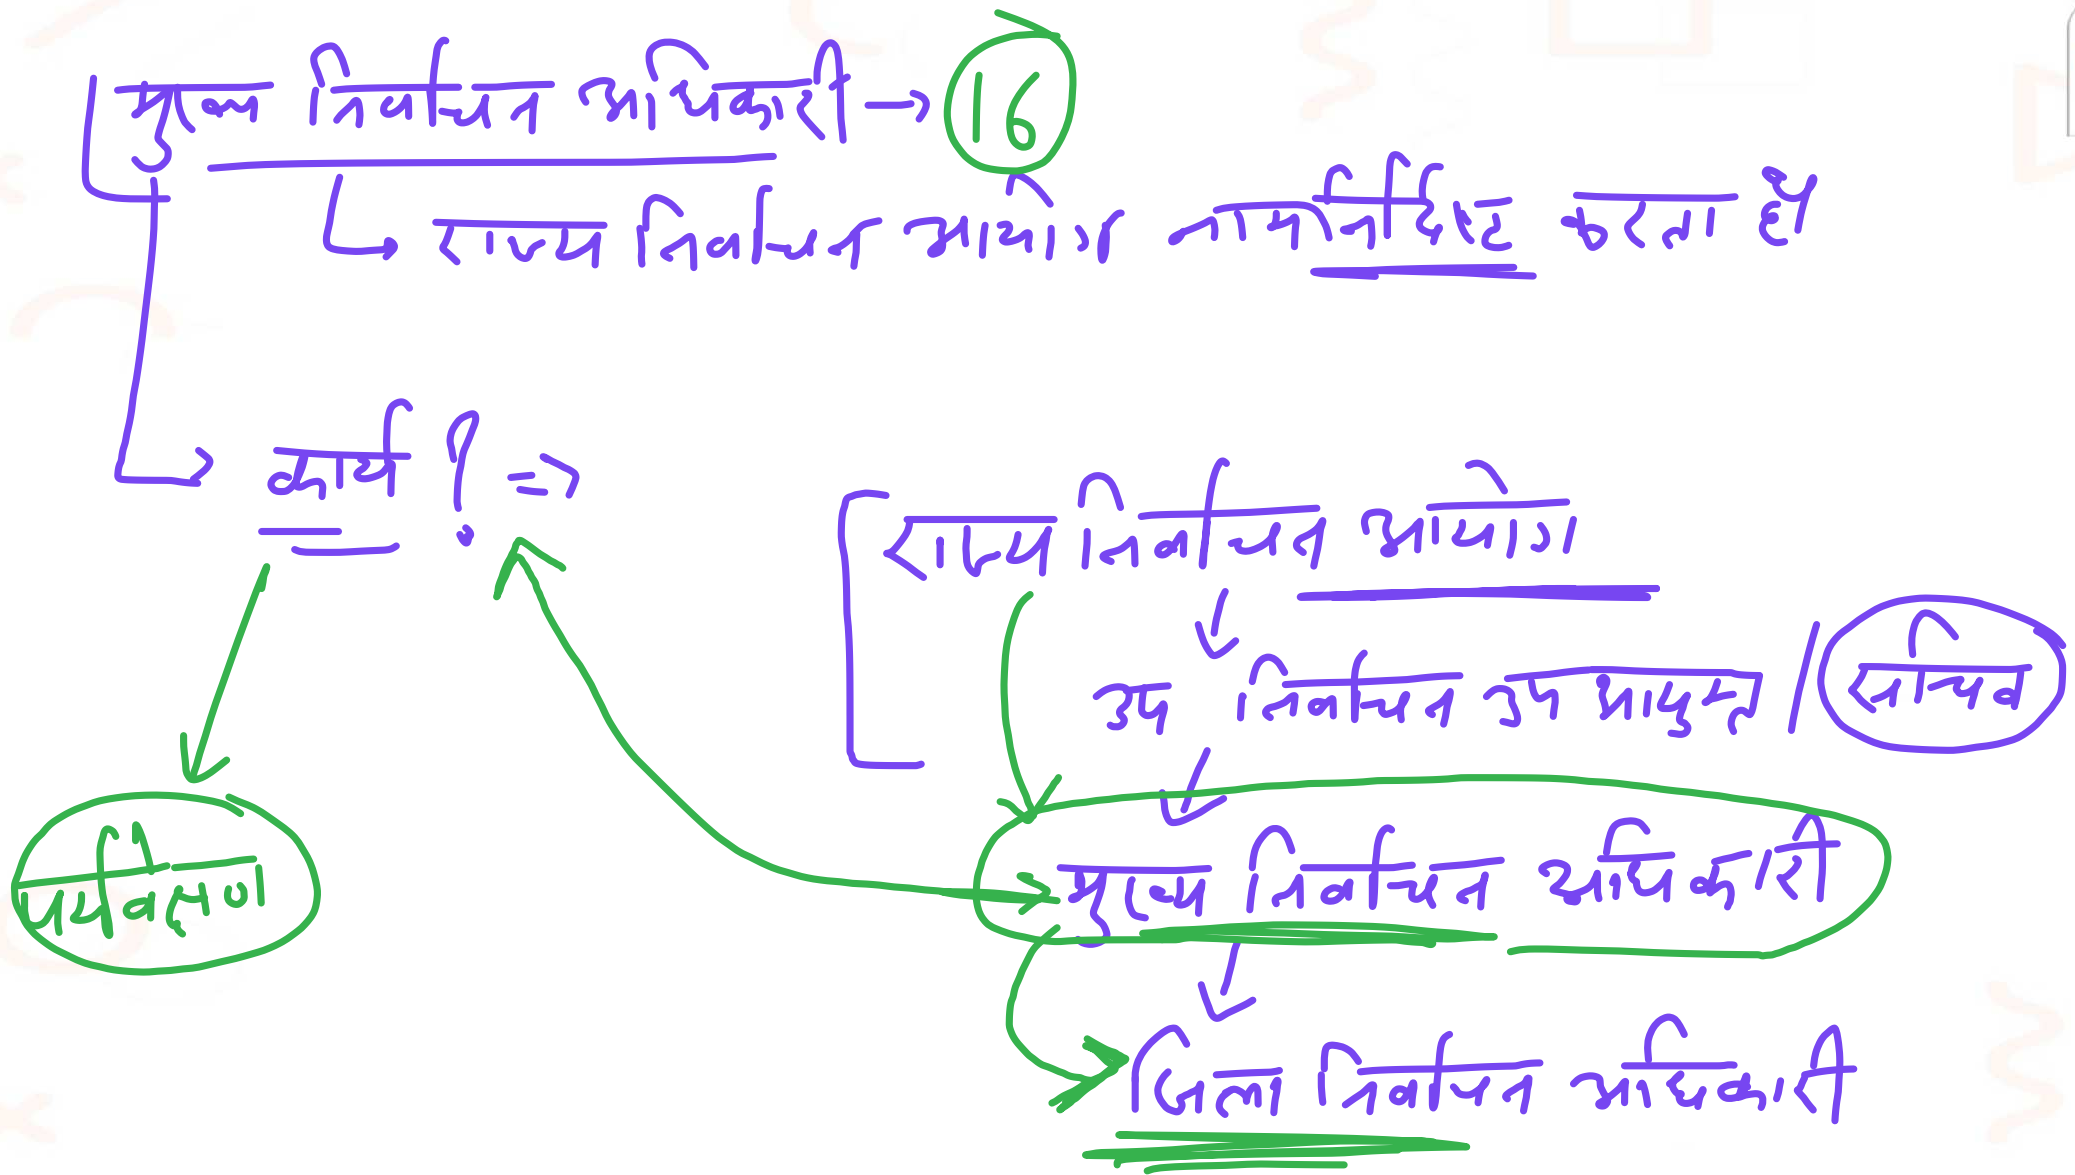 मुख्य निर्वाचन अधिकारी → 16
राज्य निर्वाचन आयोग नामनिर्दिष्ट करता है
कार्य ? =>
राज्य निर्वाचन आयोग
उप निर्वाचन उप आयुक्त / सचिव
मुख्य निर्वाचन अधिकारी
पर्यवेक्षण
जिला निर्वाचन अधिकारी